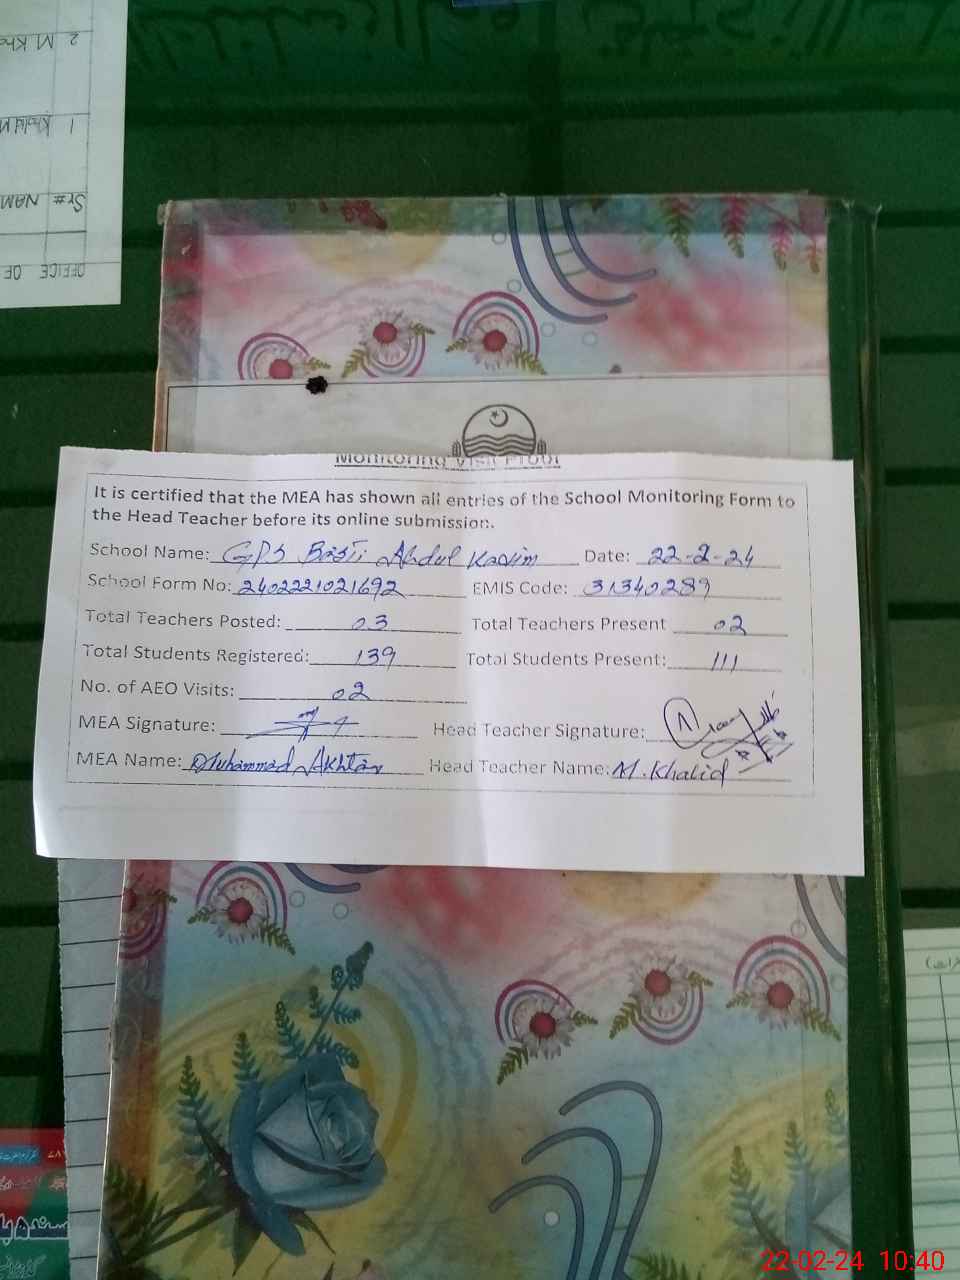 2 M Kha
1 Khalid M
Sr# NAM
OFFICE OF
Monitoring Visit Proof
It is certified that the MEA has shown all entries of the School Monitoring Form to
the Head Teacher before its online submission.
School Name: GPS Basti Abdul Karim Date: 22-2-24
School Form No: 2402221021692 EMIS Code: 31340289
Total Teachers Posted: 03 Total Teachers Present 02
Total Students Registered: 139 Total Students Present: 111
No. of AEO Visits: 02
MEA Signature: Head Teacher Signature:
MEA Name: Muhammad Akhtar Head Teacher Name: M. Khalid
22-02-24 10:40